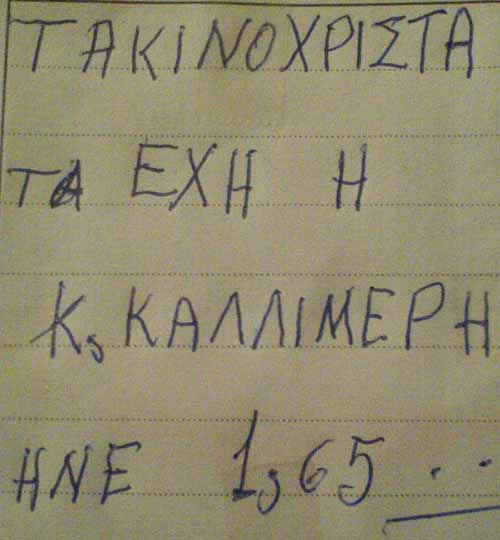 ΤΑΚΙΝΟΧΡΙΣΤΑ
ΤΑ ΕΧΗ Η
Κ, ΚΑΛΛΙΜΕΡΗ
ΗΝΕ 1,65 ..